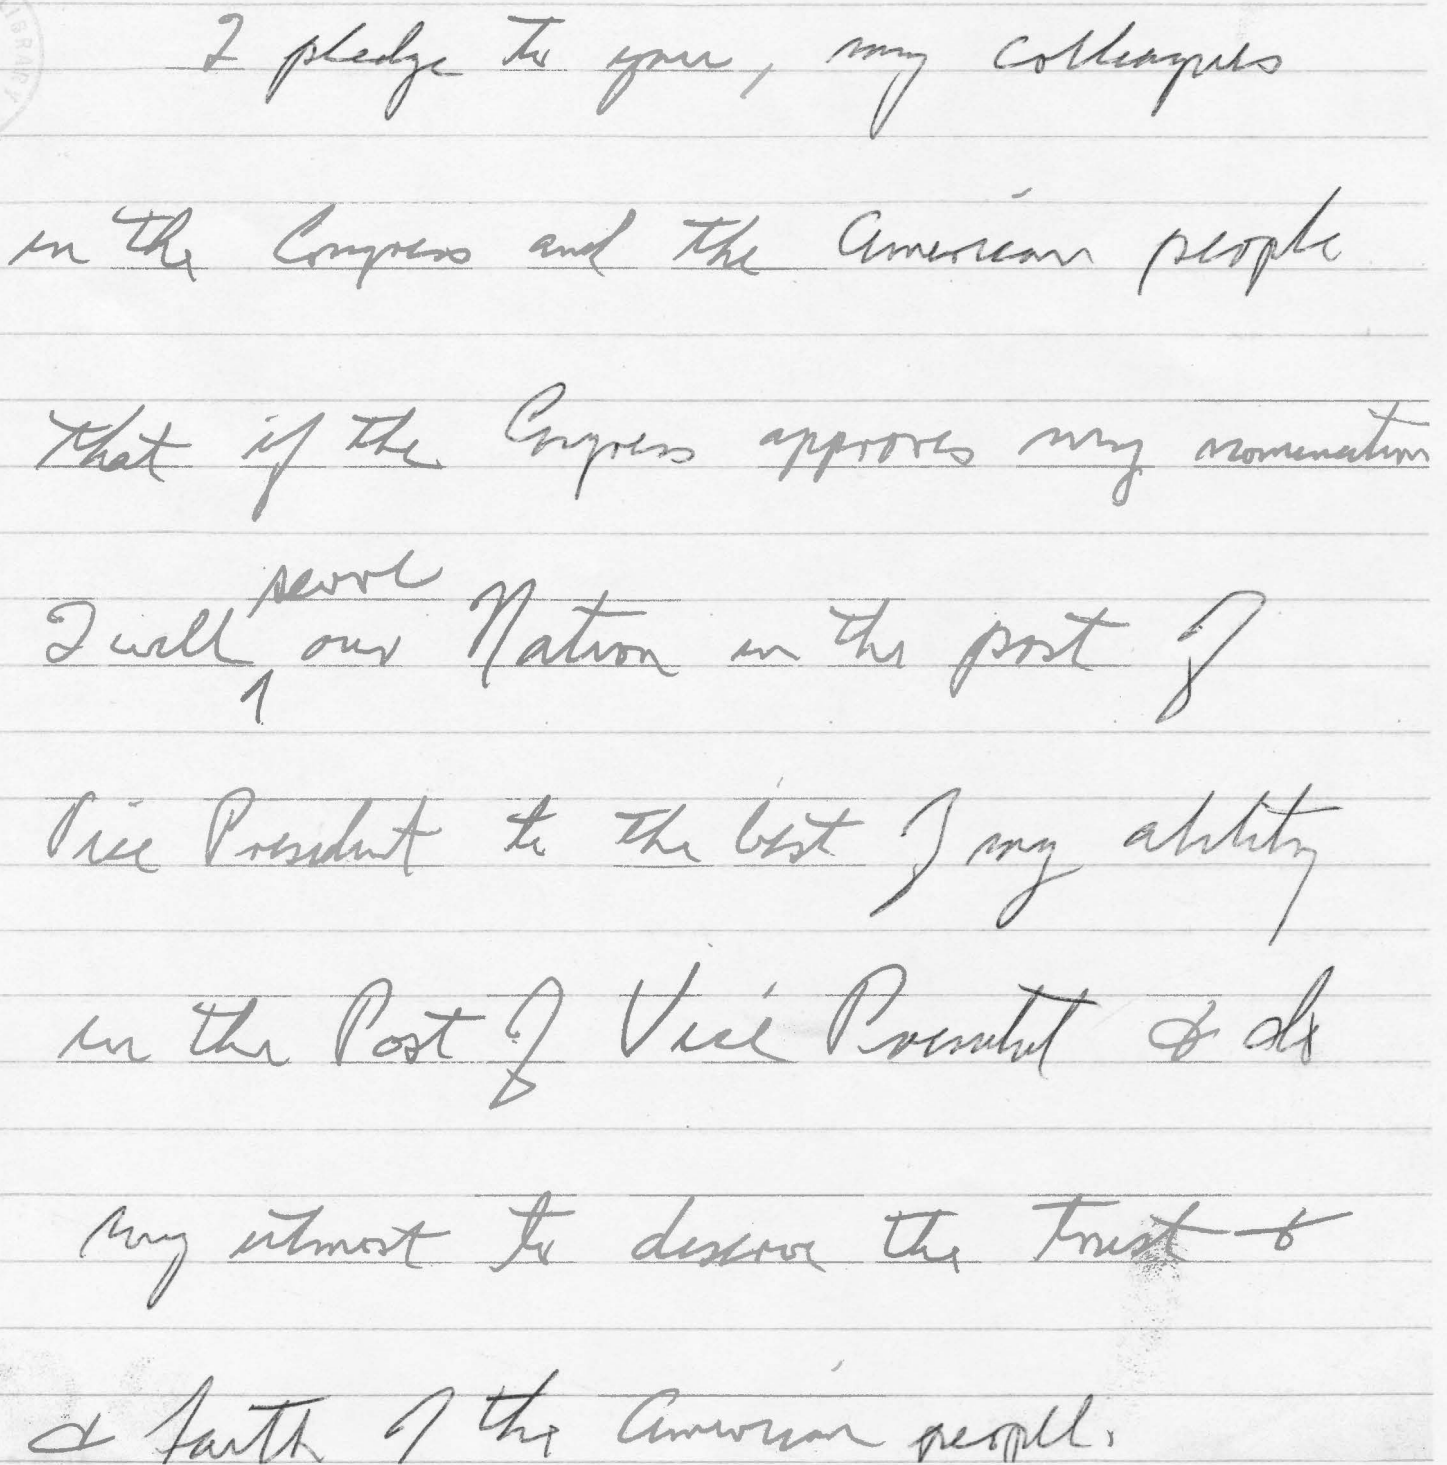 I pledge to you, my colleagues
in the Congress and the American people
that if the Congress approves my nomination
serve
I will ^ our Nation in the post of
Vice President to the best of my ability
in the Post of Vice President & do
my utmost to deserve the trust &
& faith of the American people.